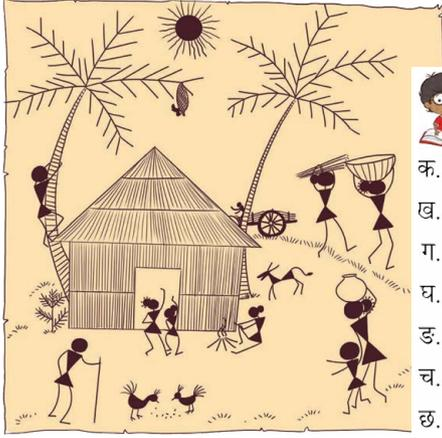 क.
ख
ग.
घ.
ङ.
च.
छ.